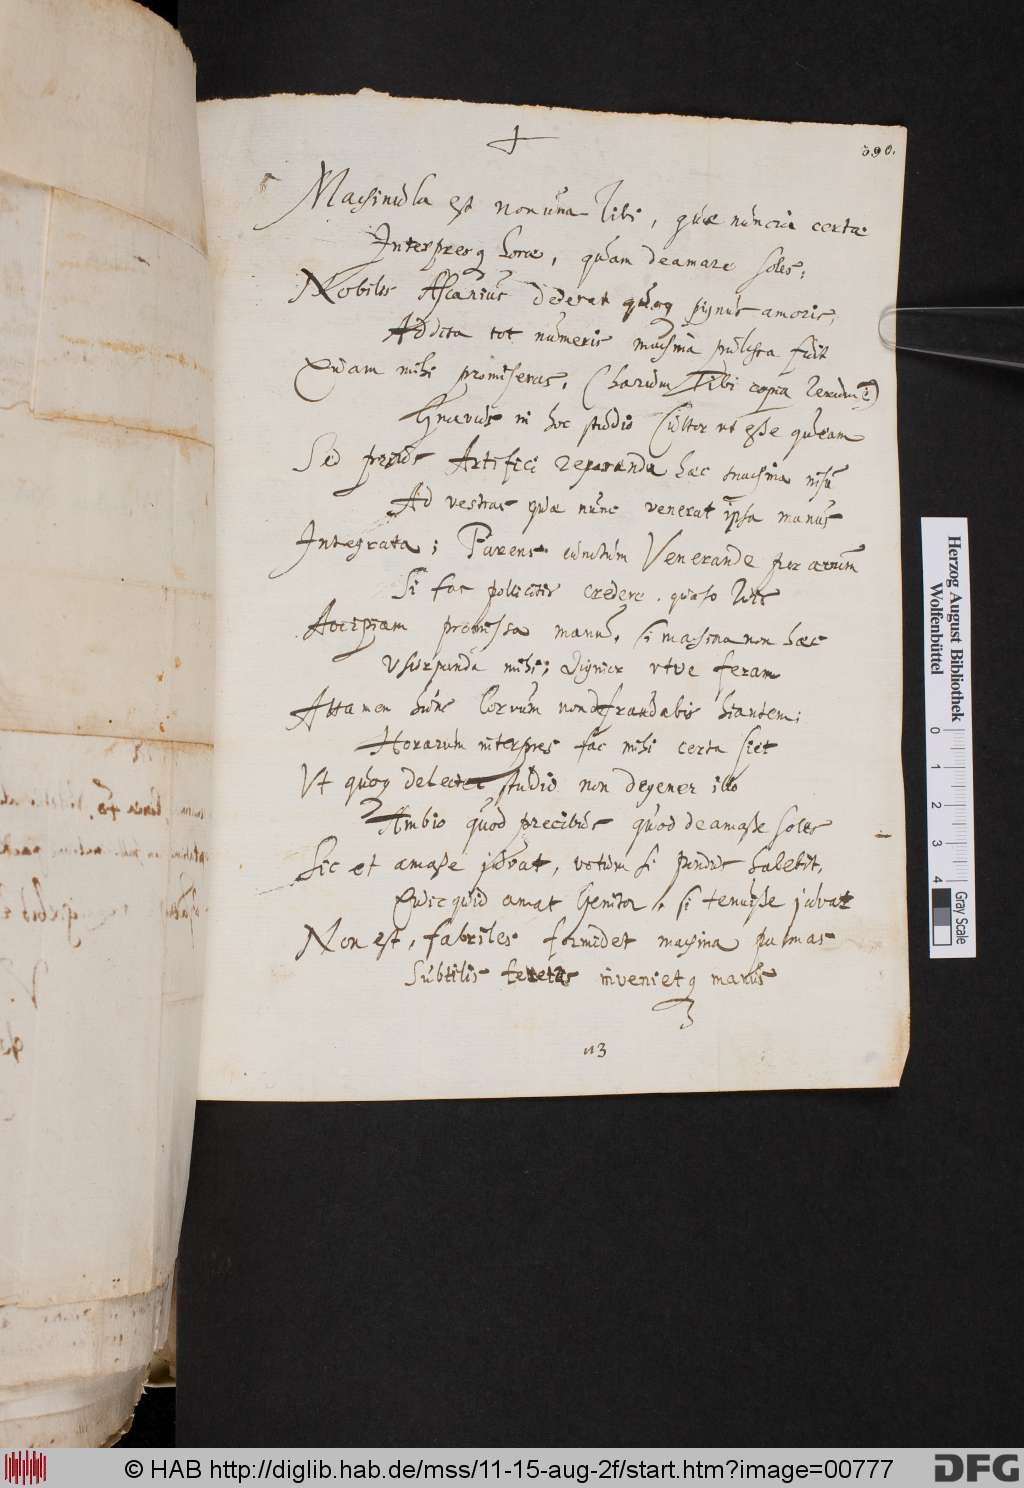 390.
Machinula est non una Tibi, quæ nuncia certa
Interpresq horæ, quam deamare soles;
Nobilis Ascanius dederat quoq pignus amoris,
Addita tot numeris machina pulchra fuit
Quam mihi promiseras, (Charum Tibi copia rerum e)
Gnavus in hoc studio Cultor ut esse queam
Sed prius Artifici reparanda hæc machina
Ad vestras quæ nunc venerat ipsa manus
Integrata; Parens cunctum Venerande per ævum
Si fas pollicitis credere quæso tuis
Accipiam promissa manu, si machina non hæc
Usurpanda mihi; dignior utve feram
Attamen hunc Corvum non defraudabis hiantem;
Horarum interpres fac mihi certa siet
Ut quoq delecter studio non degener illo
Ambio quod precibus quod deamasse soles
Sic et amasse juvat, votum si pondus habebit,
Quicquid amat Genitor, si tenuisse juvat
Non est, fabriles formidet machina palmas
Subtilis teretes invenietq manus
113
Herzog August Bibliothek
Wolfenbüttel
0 1 2 3 4
Gray Scale
© HAB http://diglib.hab.de/mss/11-15-aug-2f/start.htm?image=00777
DFG